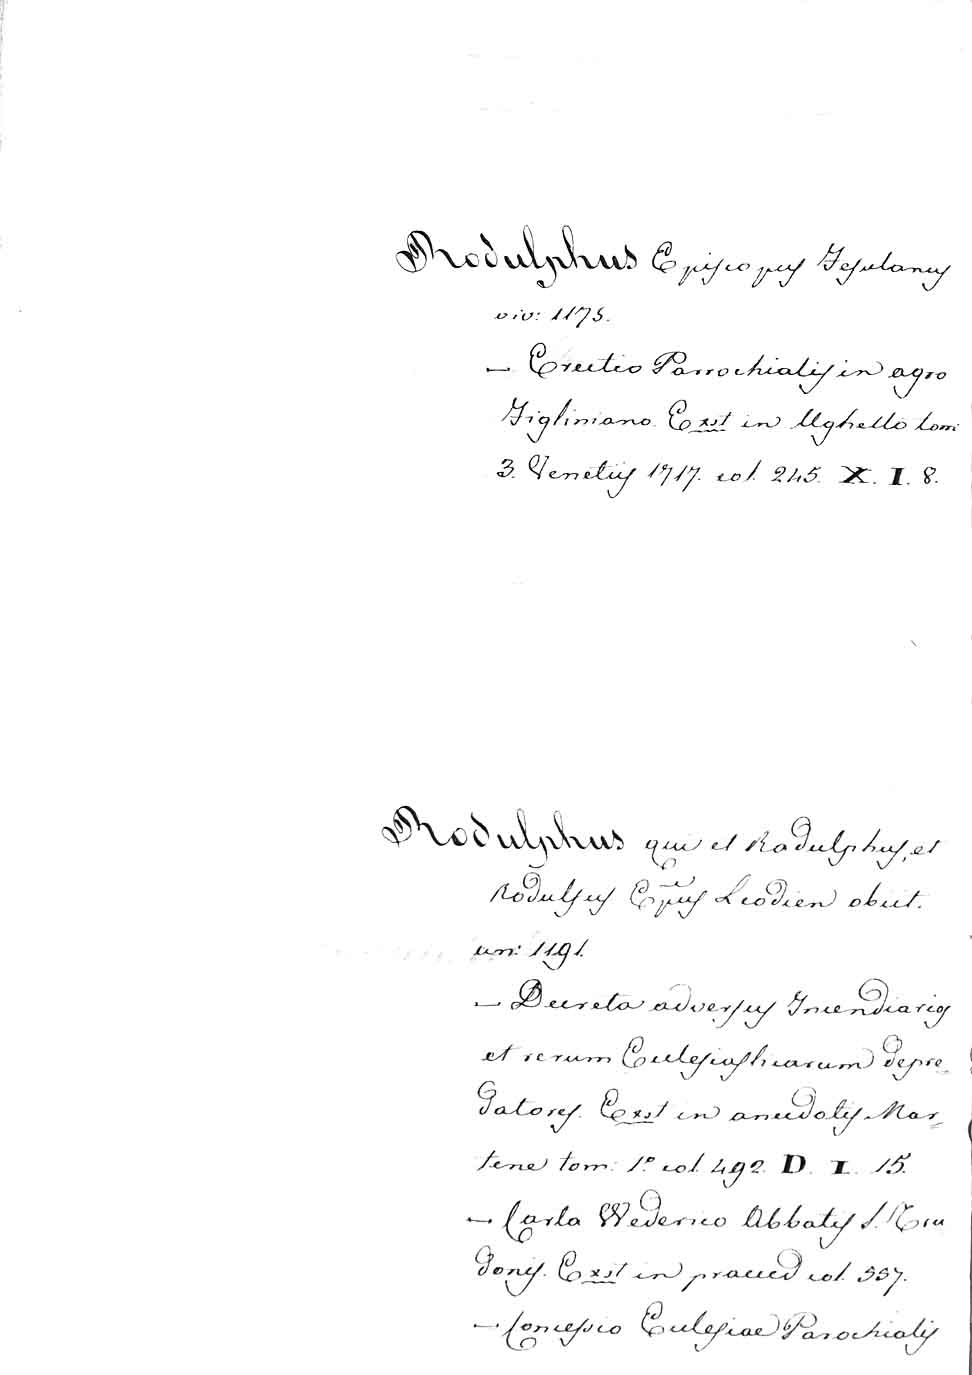 Rodulphus Episcopus Fesulanus
viv: 1175.
— Erectio Parrochialis in agro
Figliniano. Exst in Ughello tom:
3. Venetiis 1717. col. 245. X. I. 8.
Rodulphus qui et Radulphus, et
Rodulfus Epus Leodien obiit.
an: 1191.
— Decreta adversus Incendiarios
et rerum Ecclesiasticarum depre=
datores. Exst in anecdotis Mar=
tene tom: 1.º col. 492. D. I. 15.
— Carta Wederico Abbatis S. Tru
donis. Exst in praeced col. 557.
— Concessio Ecclesiae Parochialis